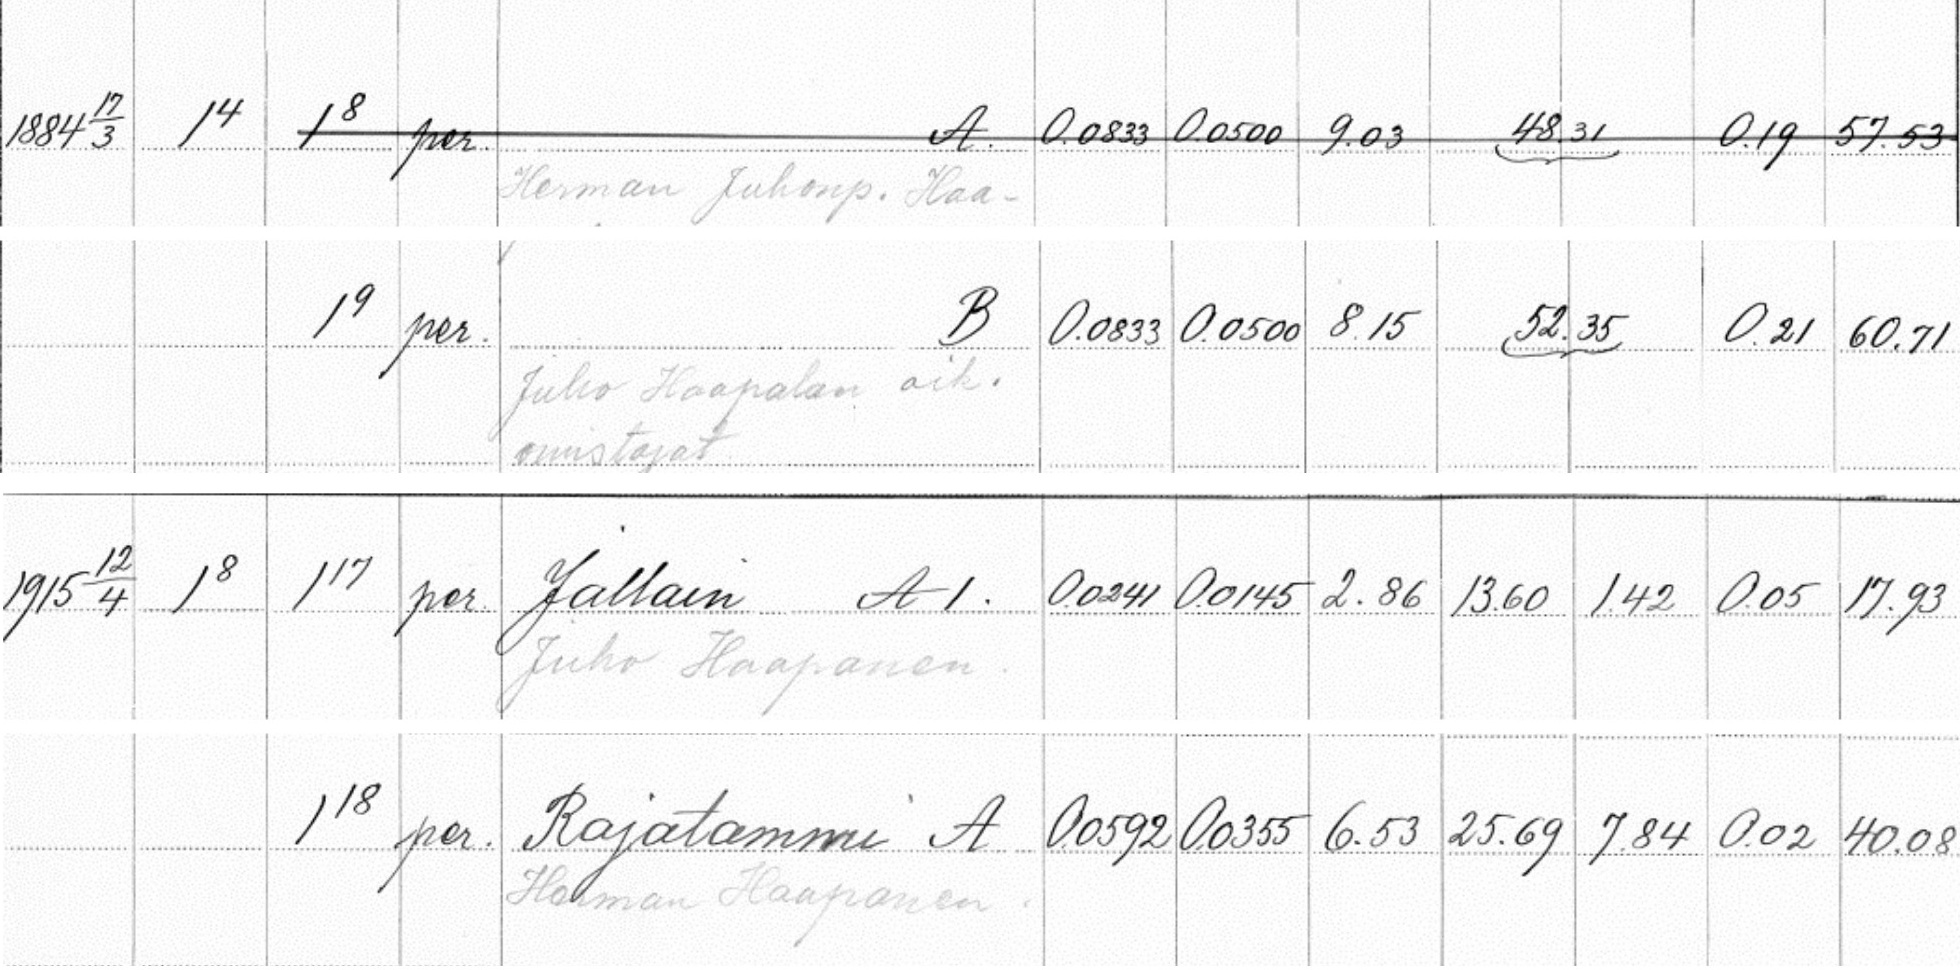 1884 17/3 1⁴ 1⁸ per. A. 0.0833 0.0500 9.03 48.31 0.19 57.53
Herman Juhonp. Haa-
1⁹ per. B 0.0833 0.0500 8.15 52.35 0.21 60.71
Juho Haapalan oik.
omistajat
1915 12/4 1⁸ 1¹⁷ per. Jallain A 1. 0.0241 0.0145 2.86 13.60 1.42 0.05 17.93
Juho Haapanen.
1¹⁸ per. Rajatammi A 0.0592 0.0355 6.53 25.69 7.84 0.02 40.08
Herman Haapanen.